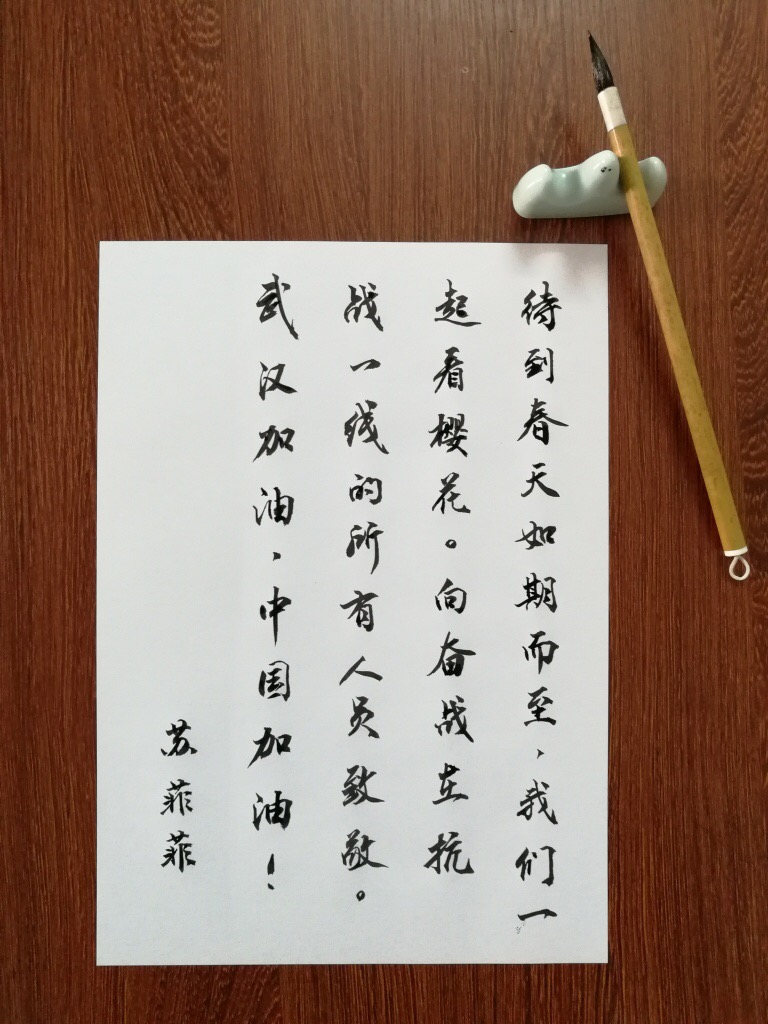 待到春天如期而至，我们一
起看樱花。向奋战在抗
战一线的所有人员致敬。
武汉加油，中国加油！
苏菲菲